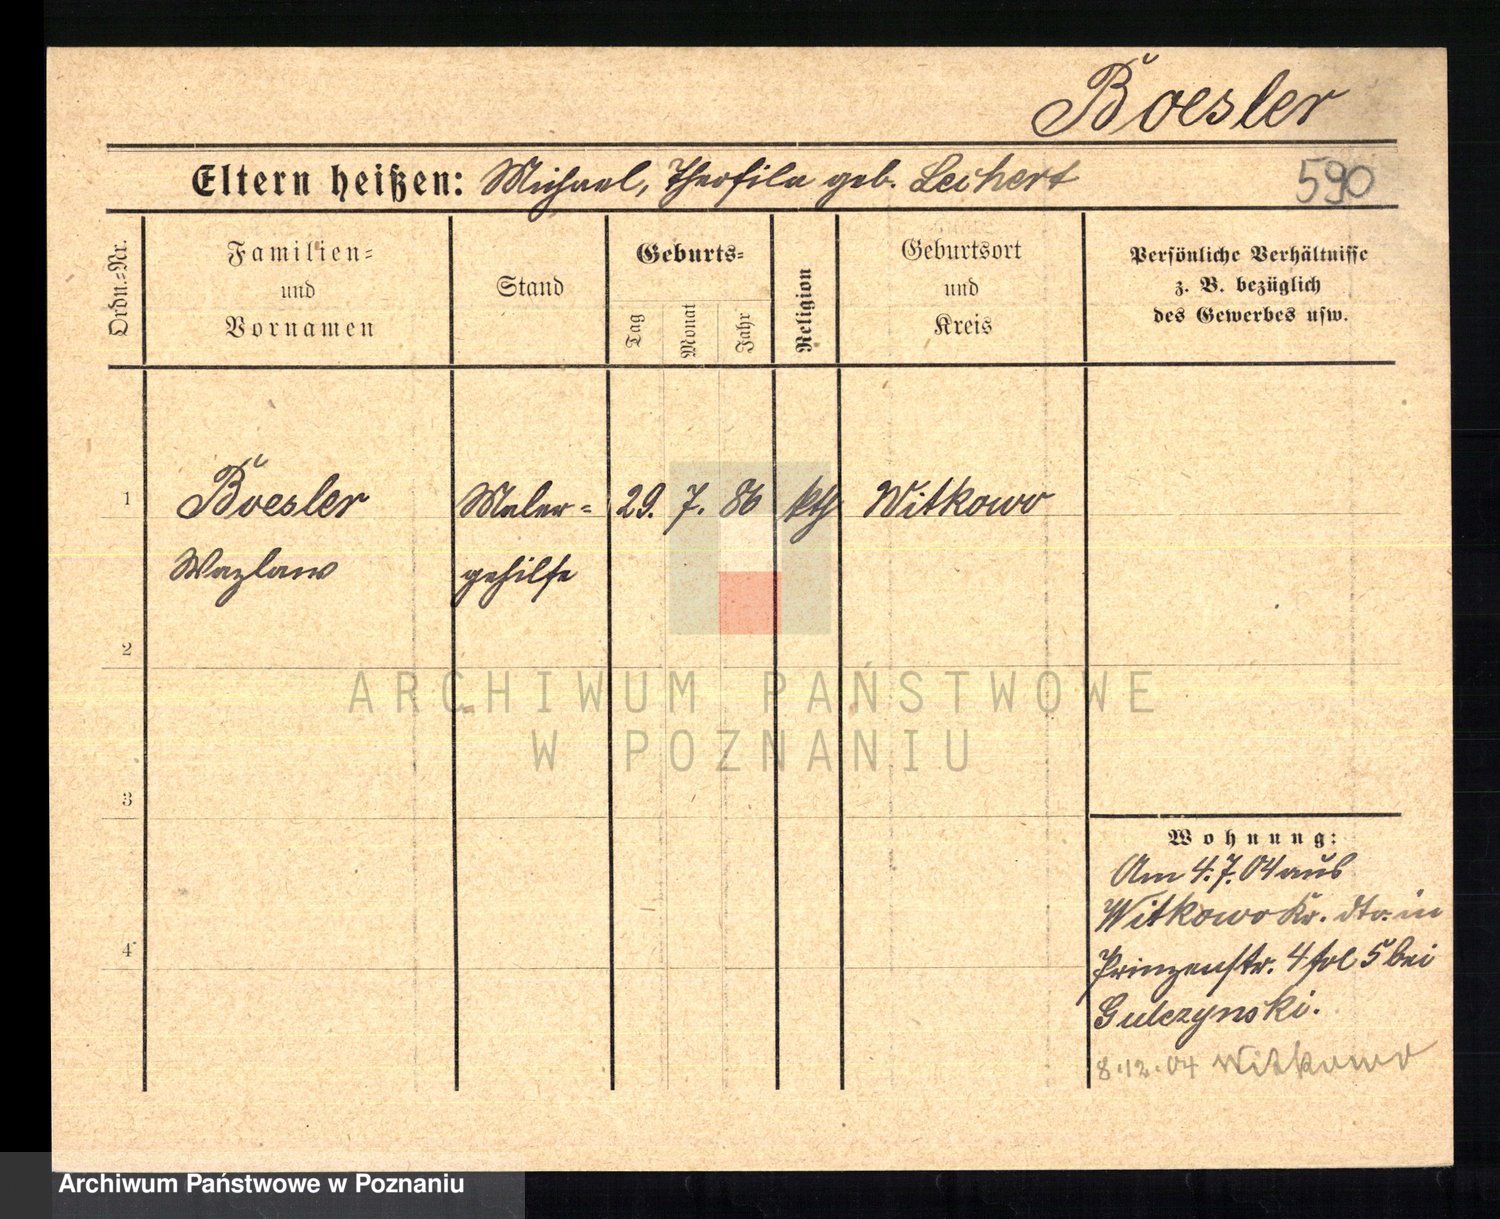 Boesler
Eltern heißen: Michael, Theofila geb. Leichert
590
Ordn.-Nr.
Familien-
und
Vornamen
Stand
Geburts-
Tag
Monat
Jahr
Religion
Geburtsort
und
Kreis
Persönliche Verhältnisse
z. B. bezüglich
des Gewerbes usw.
1 Boesler Maler- 29. 7. 86 kth Witkowo
Wazlaw gehilfe
2
3
4
Wohnung:
Am 4.7.04 aus
Witkowo Kr. dto. in
Prinzenstr. 4 fol 5 bei
Gulczynski.
8.12.04 Witkowo
ARCHIWUM PAŃSTWOWE
W POZNANIU
Archiwum Państwowe w Poznaniu